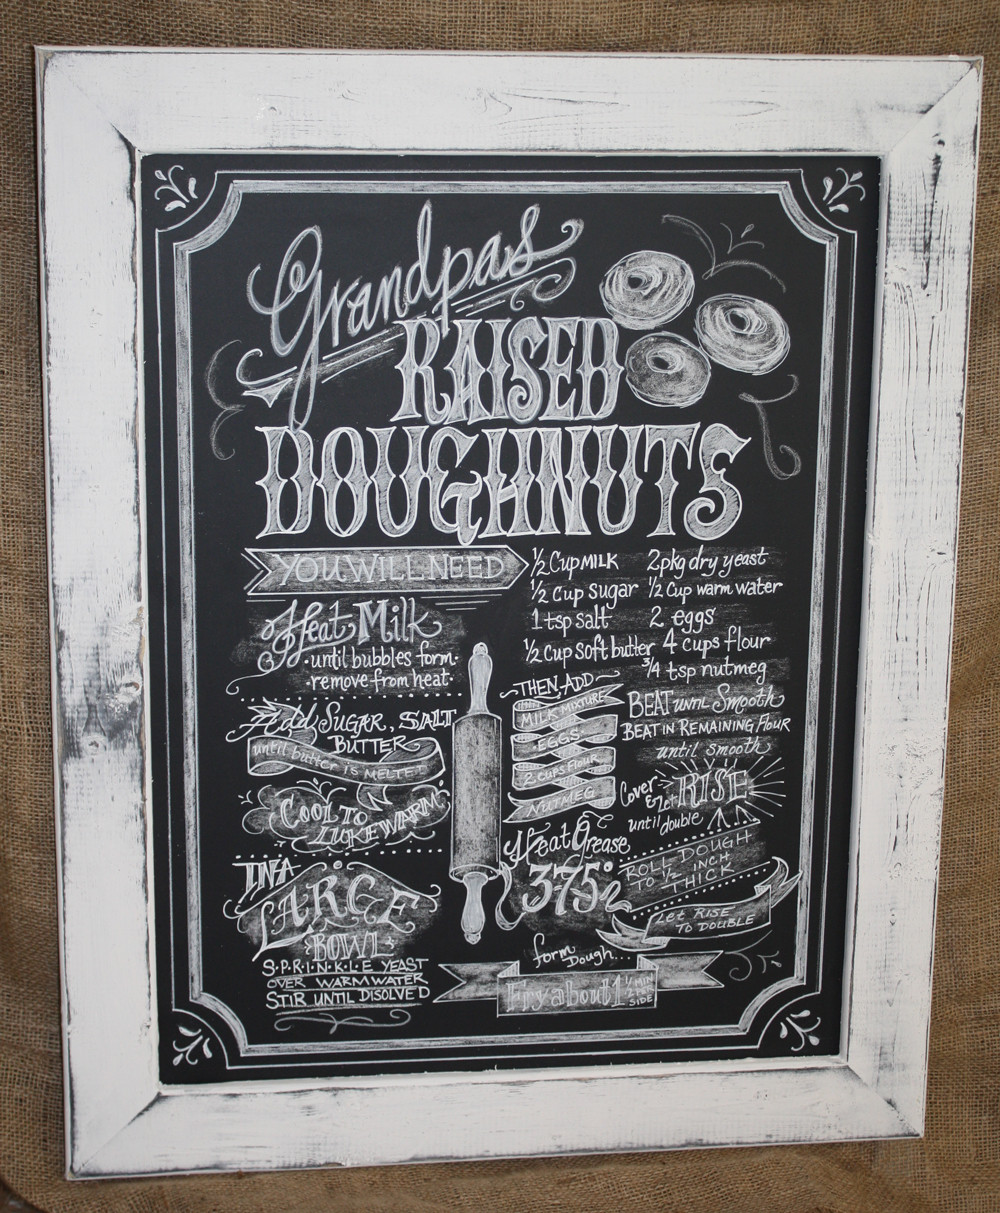 Grandpas
RAISED
DOUGHNUTS
YOU WILL NEED
½ Cup MILK
½ Cup sugar
1 tsp salt
½ Cup Soft butter
2 pkg dry yeast
½ Cup warm water
2 eggs
4 cups flour
¾ tsp nutmeg
Heat Milk
·until bubbles form·
·remove from heat·
Add SUGAR, SALT
BUTTER
until butter IS MELTED
COOL TO
LUKEWARM
IN A
LARGE
BOWL
S·P·R·I·N·K·L·E YEAST
OVER WARM WATER
STIR UNTIL DISOLVED
THEN ADD
MILK MIXTURE
·EGGS·
2 CUPS FLOUR
NUTMEG
BEAT UNTIL Smooth
BEAT IN REMAINING Flour
until smooth
Cover
& let RISE
until double
ROLL DOUGH
TO ½ INCH
THICK
Let RISE
TO DOUBLE
Heat Grease
375°
form
Dough...
Fry about 1 ½ MIN
PER
SIDE